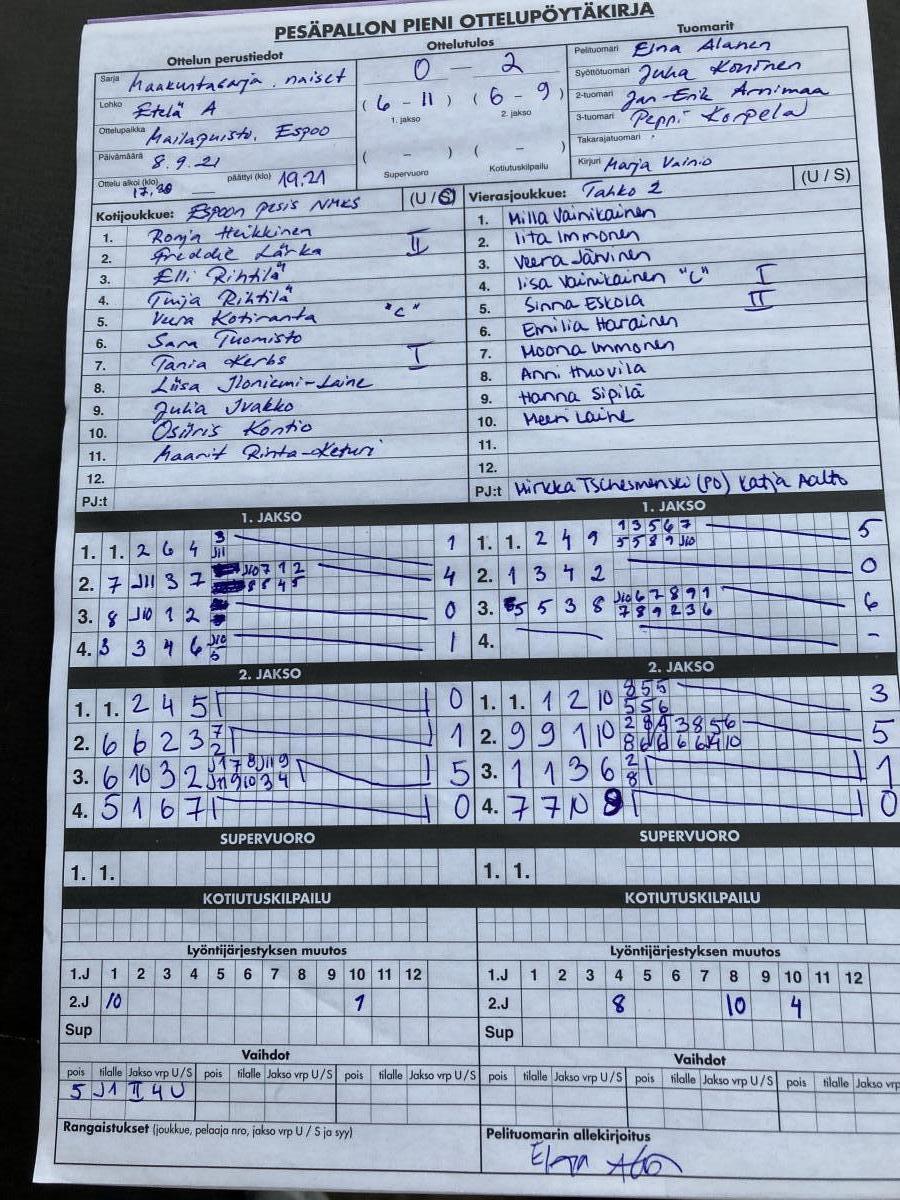 PESÄPALLON PIENI OTTELUPÖYTÄKIRJA
Ottelun perustiedot
Sarja Maakuntasarja, naiset
Lohko Etelä A
Ottelupaikka Mailapuisto, Espoo
Päivämäärä 8.9.21
Ottelu alkoi (klo) 17.30 päättyi (klo) 19.21
Ottelutulos
0 – 2
(6 – 11) (6 – 9)
1. jakso 2. jakso
( – ) ( – )
Supervuoro Kotiutuskilpailu
Tuomarit
Pelituomari Elna Alanen
Syöttötuomari Juha Koninen
2-tuomari Jan-Erik Arnimaa
3-tuomari Peppi Korpela
Takarajatuomari
Kirjuri Marja Vainio
Kotijoukkue: Espoon pesis NMKS (U / S)
1. Ronja Heikkinen
2. Freddie Lärka II
3. Elli Rihtilä
4. Tuija Rihtilä
5. Veera Kotiranta "C"
6. Sara Tuomisto
7. Tania Kerbs I
8. Liisa Iloniemi-Laine
9. Julia Ivakko
10. Osiiris Kontio
11. Maarit Rinta-Keturi
12.
PJ:t
Vierasjoukkue: Tahko 2 (U / S)
1. Milla Vainikainen
2. Iita Immonen
3. Veera Järvinen
4. Iisa Vainikainen "C" I
5. Sinna Eskola II
6. Emilia Harainen
7. Moona Immonen
8. Anni Huovila
9. Hanna Sipilä
10. Meeri Laine
11.
12.
PJ:t Mirkka Tschesmenski (PO) Katja Aalto
1. JAKSO
1. 1. 2 6 4 3 J11 1
2. 7 J11 3 7 J10 7 1 2 8 8 4 5 4
3. 8 J10 1 2 0
4. 3 3 4 6 J10 5 1
1. JAKSO
1. 1. 2 4 9 1 3 5 6 7 5 5 8 9 J10 5
2. 1 3 4 2 0
3. 5 5 3 8 J10 6 7 8 9 1 7 8 9 2 3 6 6
4. –
2. JAKSO
1. 1. 2 4 5 0
2. 6 6 2 3 7 2 1
3. 6 10 3 2 J1 7 8 J11 9 J11 9 10 3 4 5
4. 5 1 6 7 0
2. JAKSO
1. 1. 1 2 10 8 5 5 5 5 6 3
2. 9 9 1 10 5
3. 1 1 3 6 2 8 1
4. 7 7 10 8 0
SUPERVUORO
1. 1.
SUPERVUORO
1. 1.
KOTIUTUSKILPAILU
KOTIUTUSKILPAILU
Lyöntijärjestyksen muutos
1.J 1 2 3 4 5 6 7 8 9 10 11 12
2.J 10 1
Sup
Lyöntijärjestyksen muutos
1.J 1 2 3 4 5 6 7 8 9 10 11 12
2.J 8 10 4
Sup
Vaihdot
pois tilalle Jakso vrp U / S pois tilalle Jakso vrp U / S pois tilalle Jakso vrp U / S
5 J1 II 4 U
Vaihdot
pois tilalle Jakso vrp U / S pois tilalle Jakso vrp U / S pois tilalle Jakso vrp
Rangaistukset (joukkue, pelaaja nro, jakso vrp U / S ja syy)
Pelituomarin allekirjoitus